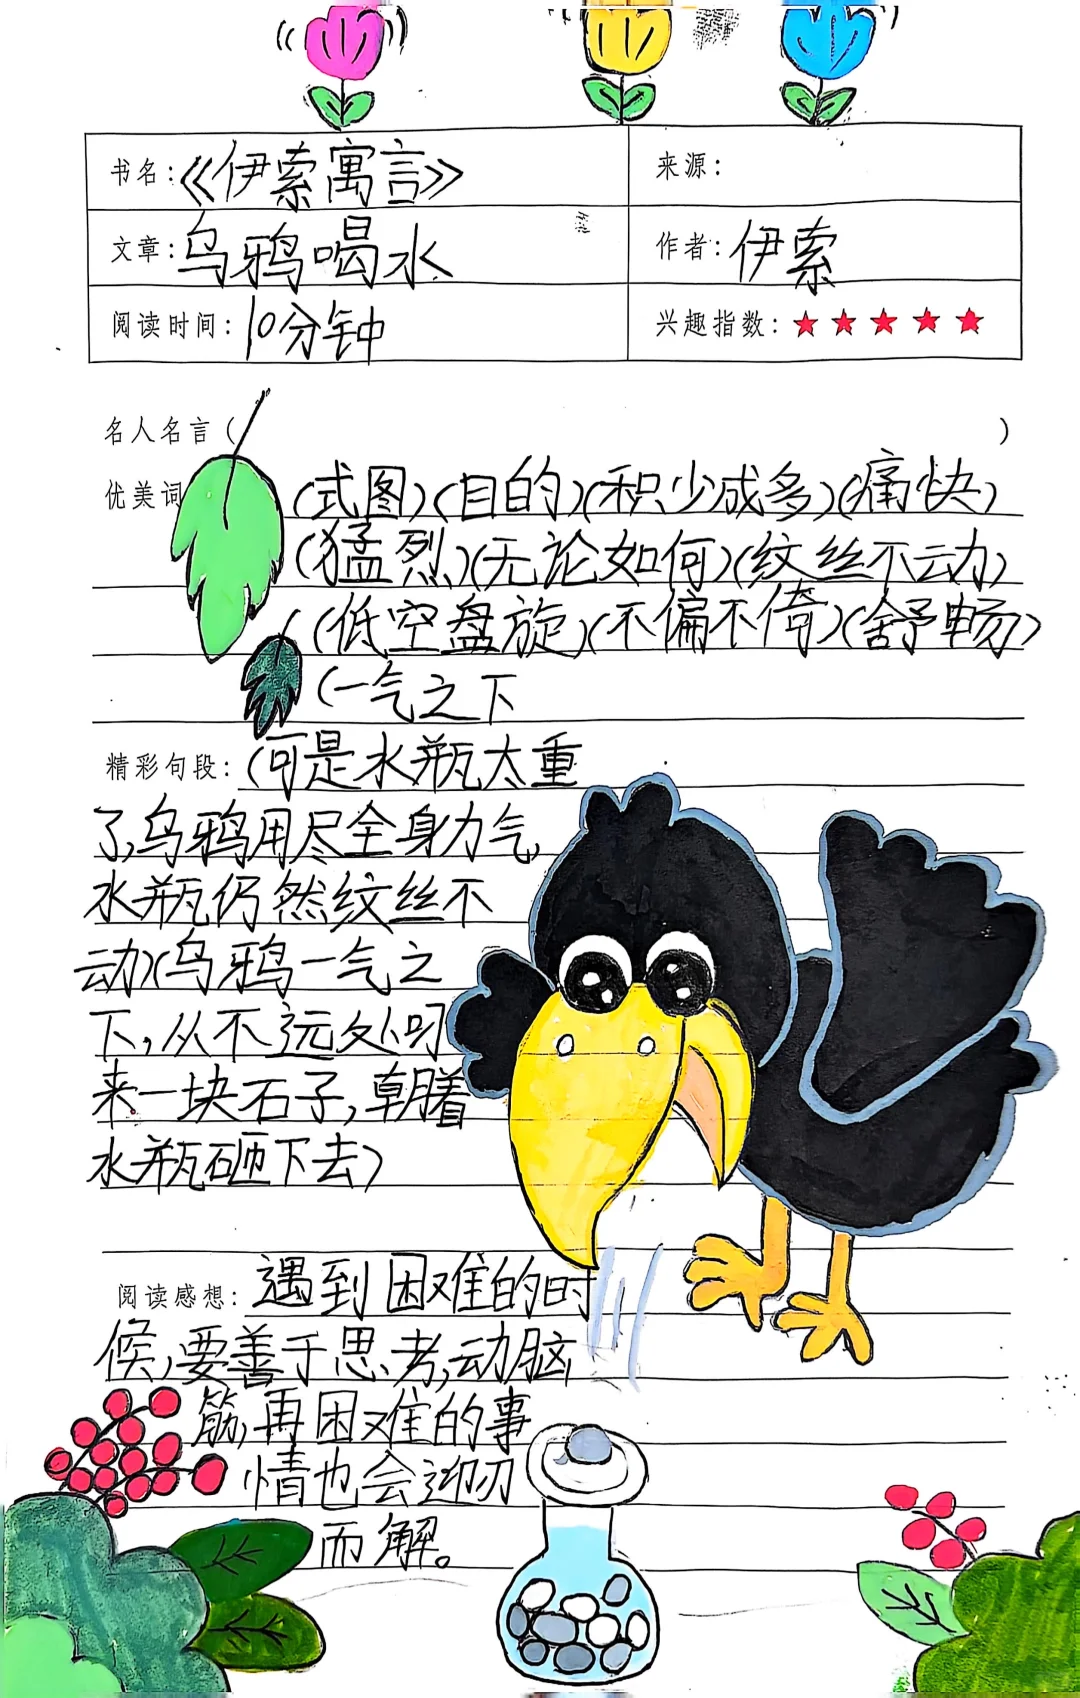 书名:《伊索寓言》 来源:
文章:乌鸦喝水 作者:伊索
阅读时间:10分钟 兴趣指数:★★★★★
名人名言( )
优美词 (式图)(目的)(积少成多)(痛快)
(猛烈)(无论如何)(纹丝不动)
(低空盘旋)(不偏不倚)(舒畅)
(一气之下
精彩句段:(可是水瓶太重
了,乌鸦用尽全身力气,
水瓶仍然纹丝不
动)(乌鸦一气之
下,从不远处叼
来一块石子,朝着
水瓶砸下去)
阅读感想:遇到困难的时
候,要善于思考,动脑
筋,再困难的事
情也会迎刃
而解。